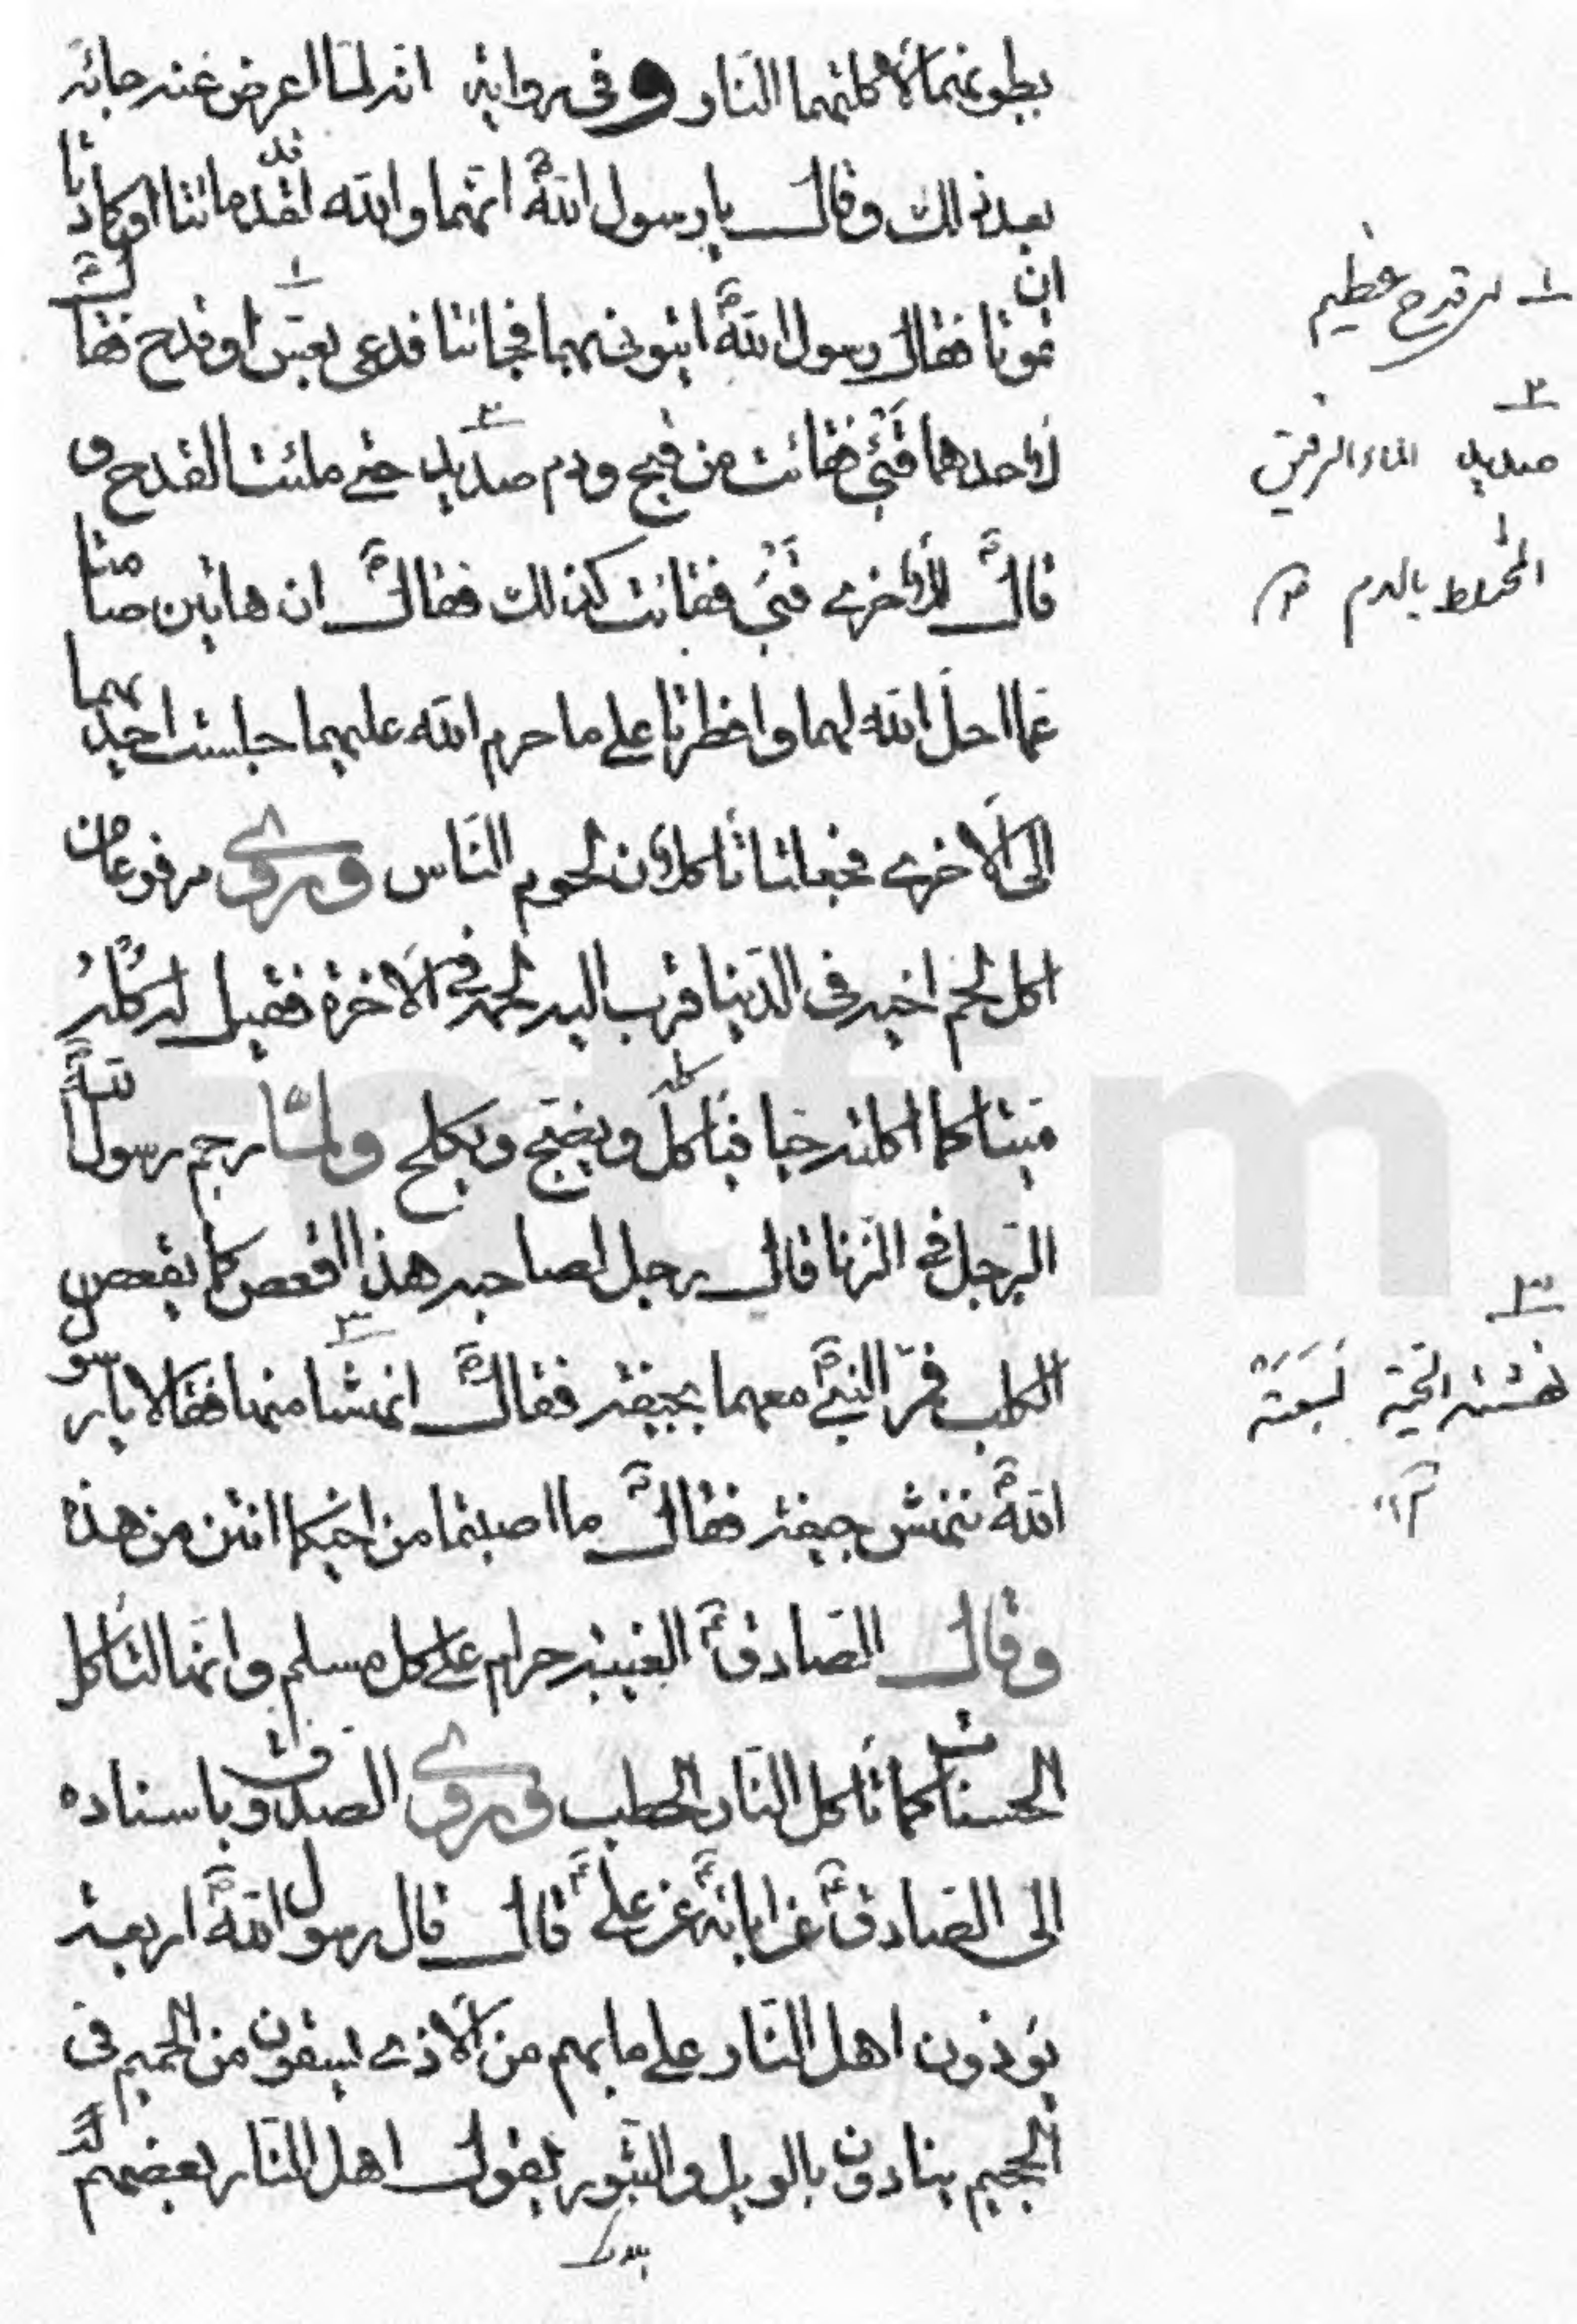 بطونهما لأكلتهما النار وفى رواية انه لما اعرض عنه جائه
بعد ذالك وقال يا رسول الله انهما والله لقد ماتتا او كادتا
ان تموتا فقال رسول الله ايتونى بهما فجائتا فدعى بعس او قدح فقال
لاحدهما قيئى فقائت من قيح ودم صديد حتى ملئت القدح و
قال للأخرى قيئ فقائت كذالك فقال ان هاتين صامتا
عما احل الله لهما وافطرتا على ما حرم الله عليهما جلست احديهما
الى الاخرى فجعلتا تأكلان لحوم الناس وروى مرفوعا من
اكل لحم اخيه فى الدنيا قرب اليه لحمه فى الاخرة فقيل له كله
ميتا كما اكلته حيا فيأكله ويضج ويكلح ولما رجم رسول الله
الرجل فى الزنا قال رجل لصاحبه هذا اقعص كما يقعص
الكلب فمر النبى معهما بجيفة فقال انهشا منها فقالا يا رسول
الله ننهش جيفة فقال ما اصبتما من اخيكما انتن من هذه
وقال الصادق الغيبة حرام على كل مسلم وانها لتأكل
الحسنات كما تأكل النار الحطب وروى الصدوق باسناده
الى الصادق عن ابائه عن على قال قال رسول الله اربعة
يؤذون اهل النار على ما بهم من الاذى يسقون من الحميم فى
الجحيم ينادون بالويل والثبور يقول اهل النار بعضهم
١ قدح عظيم
٢
صديد الماء الرقيق
المختلط بالدم
٣
نهشته الحية لسعته